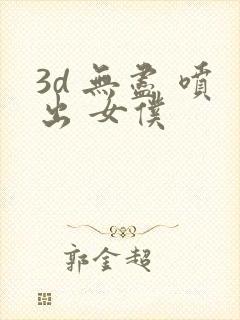 3d 無盡 噴
出 女僕
郭金超